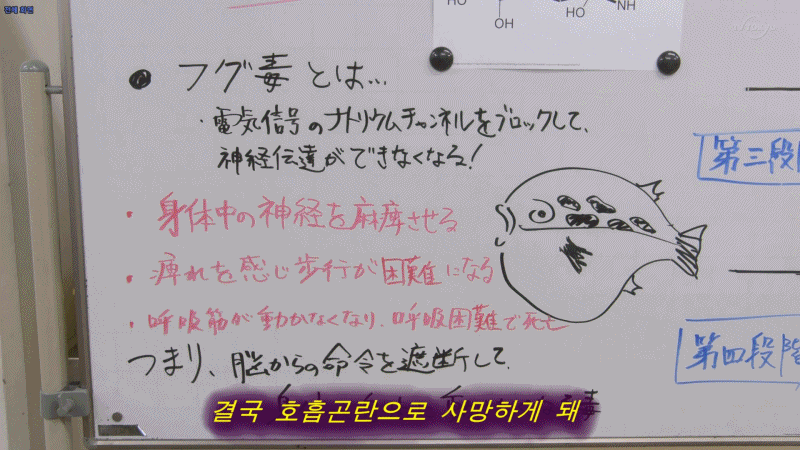 판매 화면
HO
OH
HO
NH
TV TOKYO
● フグ毒とは…
・電気信号のナトリウムチャンネルをブロックして、
神経伝達ができなくなる！
・身体中の神経を麻痺させる
・痺れを感じ歩行が困難になる
・呼吸筋が動かなくなり、呼吸困難で死亡
つまり、脳からの命令を遮断して、
毒
第三段階
第四段階
결국 호흡곤란으로 사망하게 돼